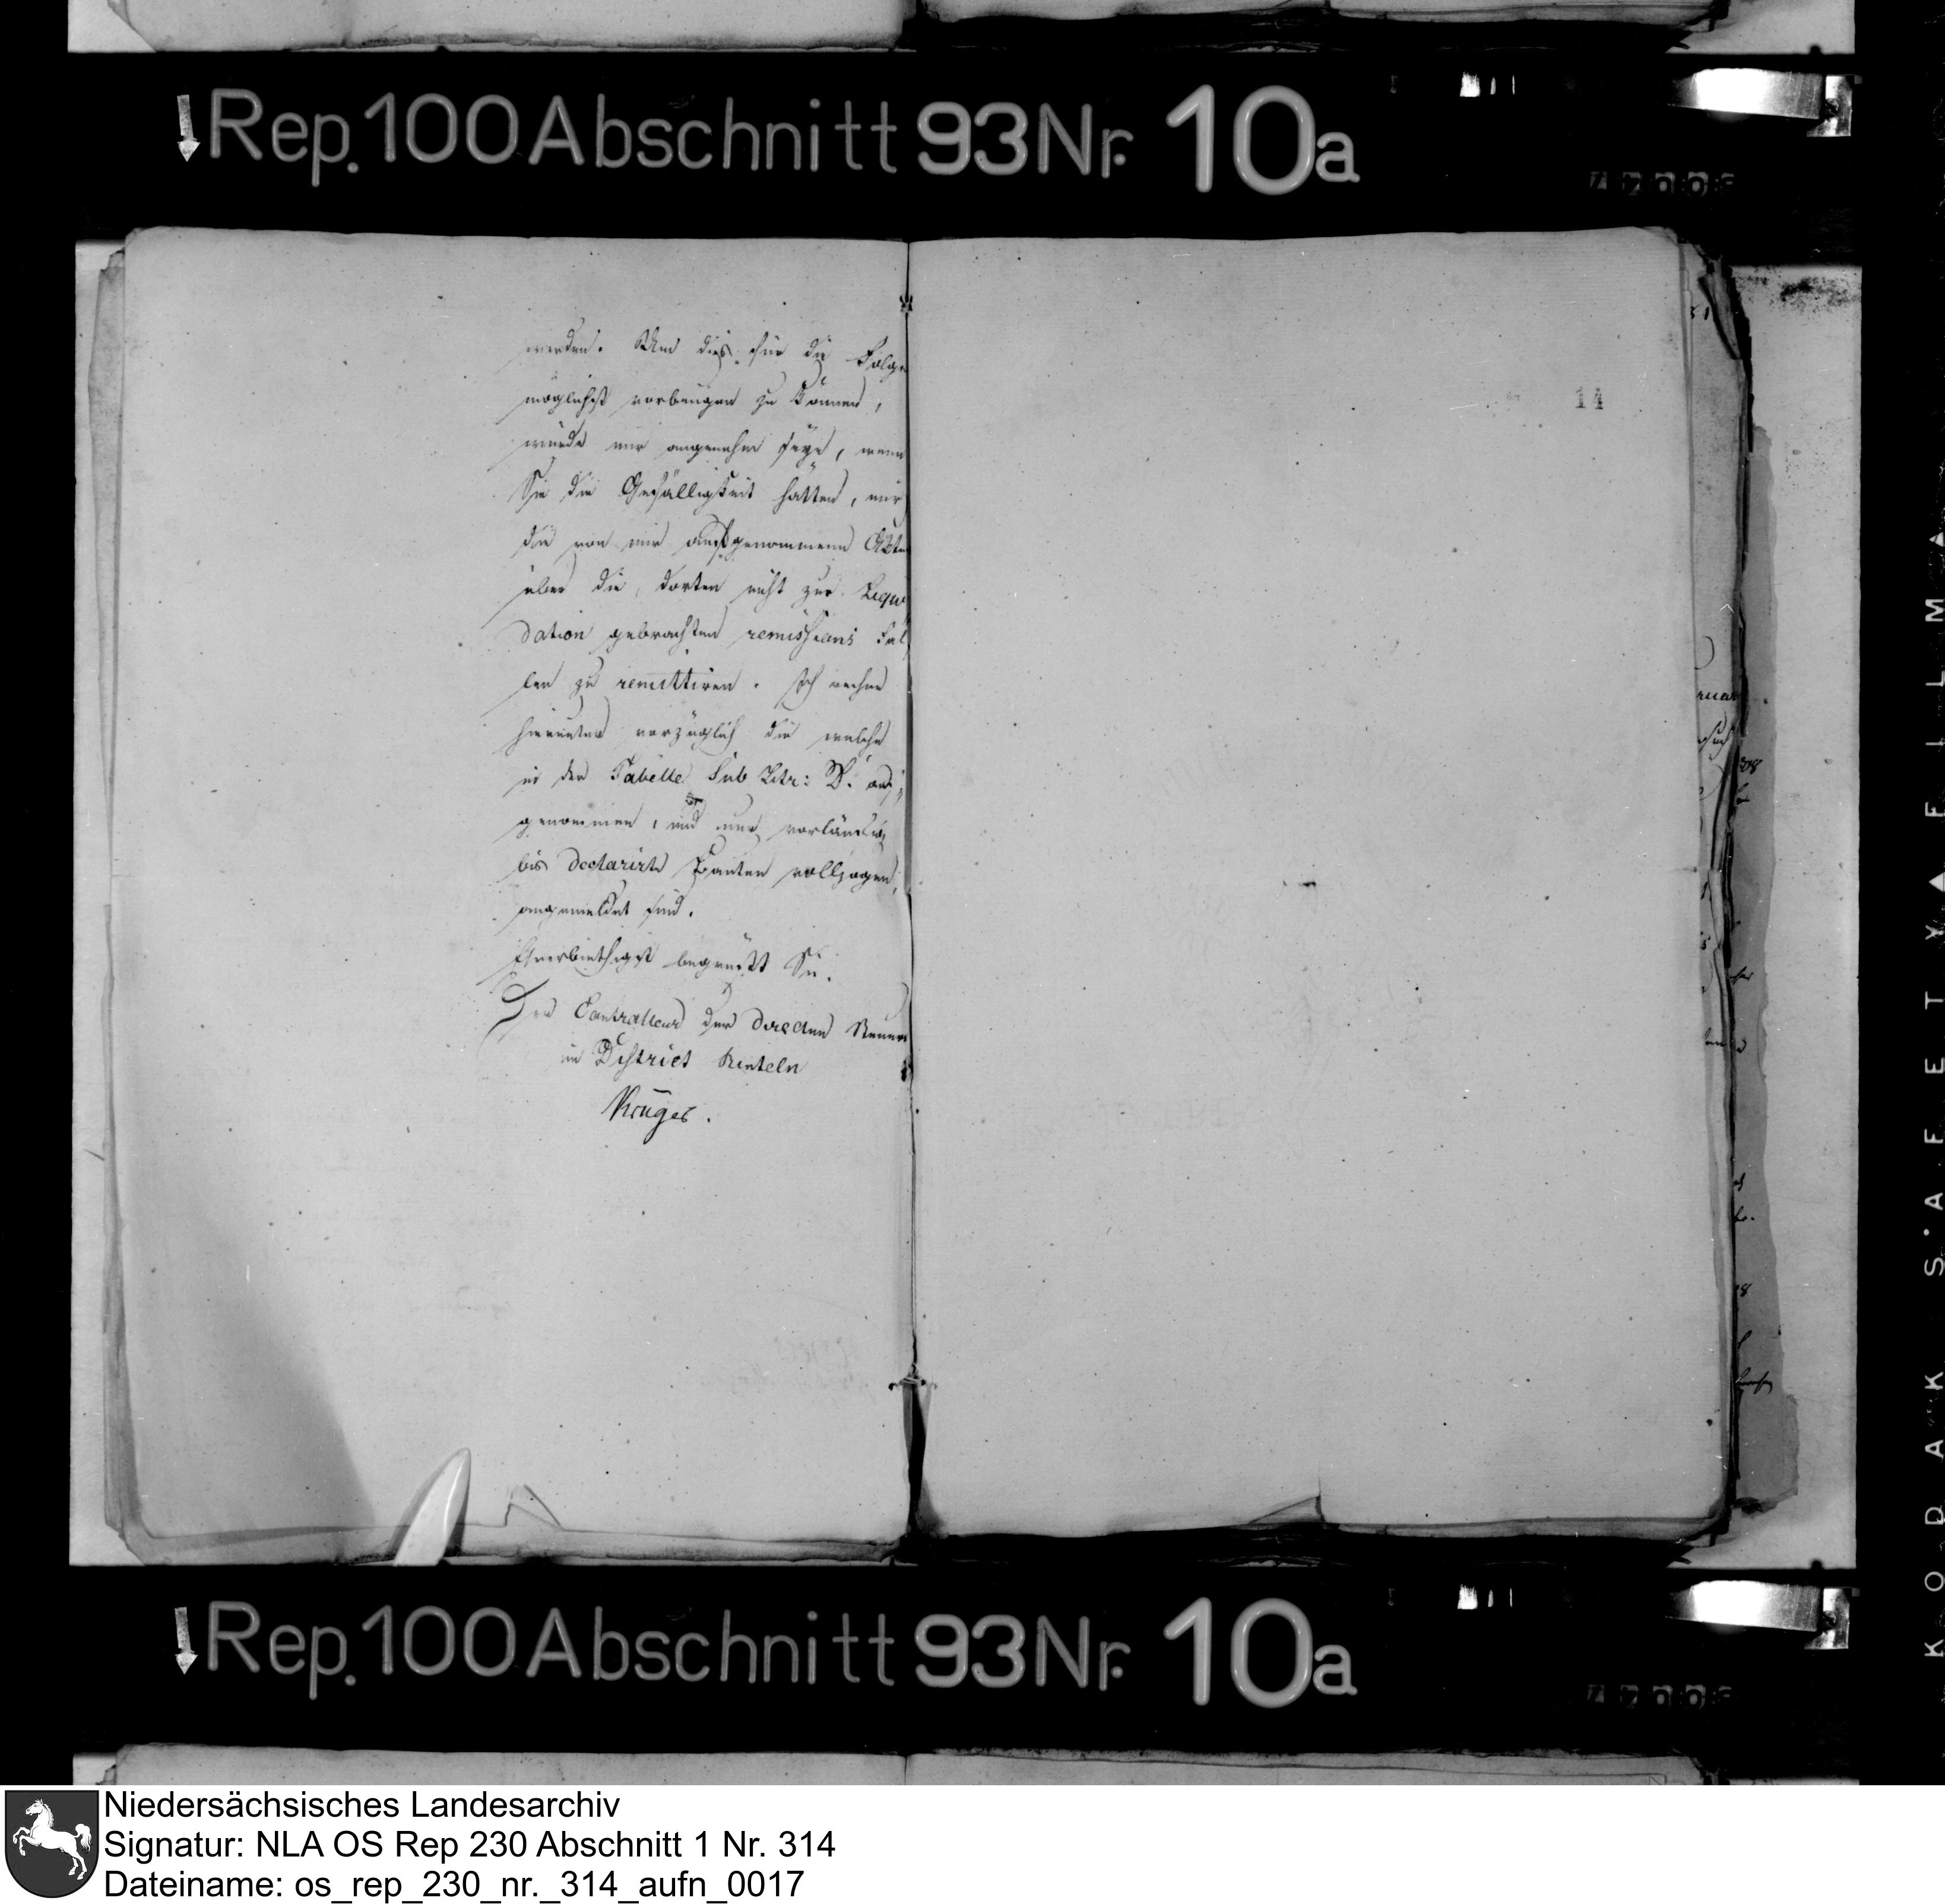 Rep. 100 Abschnitt 93 Nr. 10a
werden. Um dies für die Folge
möglichst vorbeugen zu können,
würde mir angenehm seyn, wenn
Sie die Gefälligkeit hätten, mir
die von mir aufgenommenen Akten
über die, dorten nicht zur Liqui
dation gebrachten remissions Fäl
len zu remittiren. Ich rechne
hierunter vorzüglich die welche
in der Tabelle sub Litr: B. auf,
genommen, und nur vorläufig
bis declarirte Bauten vollzogen,
angemeldet sind.
Ehrerbietigst begrüßt Sie.
Der Controlleur der directen Steuern
im District Rinteln
Krüger.
14
Rep. 100 Abschnitt 93 Nr. 10a
KODAK SAFETY FILM
Niedersächsisches Landesarchiv
Signatur: NLA OS Rep 230 Abschnitt 1 Nr. 314
Dateiname: os_rep_230_nr._314_aufn_0017